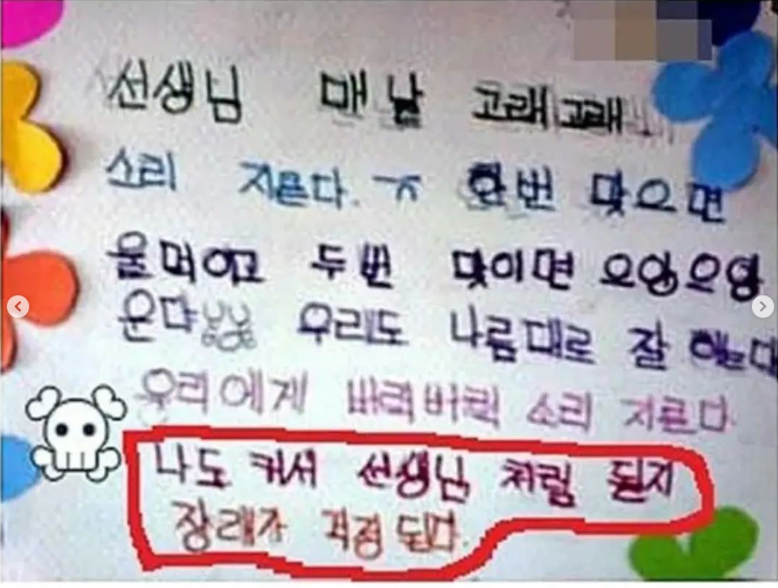 선생님 매날 고래고래
소리 지른다. ㅠ 한번 맞으면
울먹이고 두번 맞이면 으앙으앙
운다 우리도 나름대로 잘 하는데
우리에게 버럭버럭 소리 지른다
나도 커서 선생님 처럼 될지
장래가 걱정 된다.